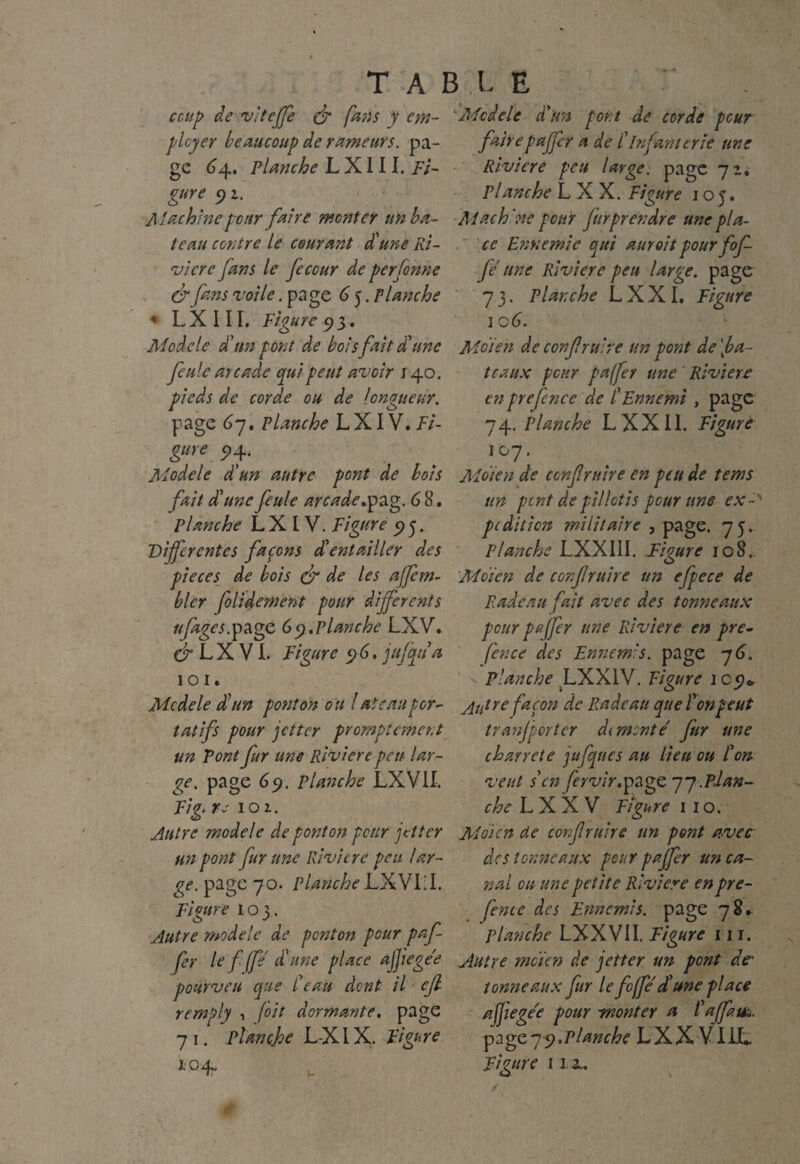 TABLE
coup de vitesse & sans y em-
ployer beaucoup de rameurs. pa-
ge 64. Planche LXIII. Fi-
gure 92.
Machine pour faire monter un ba-
teau contre le courant d'une Ri-
viere sans le secour de personne
& sans voile. page 65. Planche
LXIII. Figure 93.
Modele d'un pont de bois fait d'une
seule arcade qui peut avoir 140.
pieds de corde ou de longueur.
page 67. Planche LXIV. Fi-
gure 94.
Modele d'un autre pont de bois
fait d'une seule arcade. pag. 68.
Planche LXIV. Figure 95.
Differentes façons d'entailler des
pieces de bois & de les assem-
bler solidement pour differents
usages. page 69. Planche LXV.
& LXVI. Figure 96. jusqu'a
101.
Modele d'un ponton ou bateau por-
tatifs pour jetter promptement
un Pont sur une Riviere peu lar-
ge. page 69. Planche LXVII.
Fig. re 102.
Autre modele de ponton pour jetter
un pont sur une Riviere peu lar-
ge. page 70. Planche LXVIII.
Figure 103.
Autre modele de ponton pour pas-
ser le fossé d'une place assiegée
pourveu que l'eau dont il est
remply, soit dormante. page
71. Planche LXIX. Figure
104.
Modele d'un pont de corde pour
faire passer a de l'Infanterie une
Riviere peu large. page 72.
Planche LXX. Figure 105.
Machine pour surprendre une pla-
ce Ennemie qui auroit pour fos-
sé une Riviere peu large. page
73. Planche LXXI. Figure
106.
Moïen de construire un pont de ba-
teaux pour passer une Riviere
en presence de l'Ennemi, page
74. Planche LXXII. Figure
107.
Moïen de construire en peu de tems
un pont de pillotis pour une ex-
pedition militaire, page. 75.
Planche LXXIII. Figure 108.
Moïen de construire un espece de
Radeau fait avec des tonneaux
pour passer une Riviere en pre-
sence des Ennemis. page 76.
Planche LXXIV. Figure 109.
Autre façon de Radeau que l'on peut
transporter demonté sur une
charrete jusques au lieu ou l'on
veut s'en servir. page 77. Plan-
che LXXV Figure 110.
Moïen de construire un pont avec
des tonneaux pour passer un ca-
nal ou une petite Riviere en pre-
sence des Ennemis. page 78.
Planche LXXVII. Figure 111.
Autre moïen de jetter un pont de
tonneaux sur le fossé d'une place
assiegée pour monter a l'assaut.
page 79. Planche LXXVIII.
Figure 112.